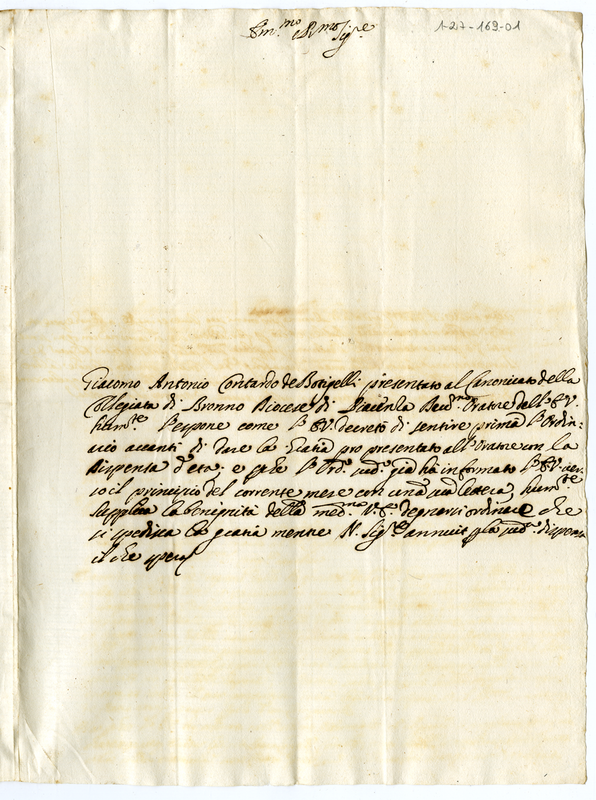 Em.mo R.mo Sig.re
1-27-169-01
Giacomo Antonio Contardo de Botigelli presentato al Canonicato della
Collegiata di Bronno Diocese di Piacenza Oratore dell' E. V.
hum.te l'espone come l' E. V. decretò di sentire prima l' Ordin-
ario avanti di dare la Gratia pro presentato all' Oratore con la
dispensa d'età; e già ha informato l' E. V. ver-
so il principio del corrente mese con una sua lettera, hum.te
supplica la benignità della med.ma V. E. degnarsi ordinare che
si spedisca la gratia mentre N. Sig.re annuit dispensa
il che spera